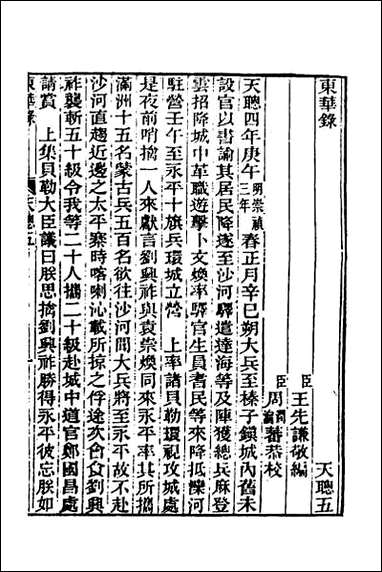 東華錄 天聰五
臣王先謙敬編
臣周潤蕃恭校
天聰四年庚午明崇禎三年春正月辛巳朔大兵至榛子鎮城內舊未
設官以書諭其居民降遂至沙河驛遣達海等及陣獲總兵麻登
雲招降城中革職遊擊卜文煥率驛官生員耆民等來降抵灤河
駐營壬午至永平十旗兵環城立營 上率諸貝勒環視攻城處
是夜前哨擒一人來獻言劉興祚與袁崇煥同來永平率其所攜
滿洲十五名蒙古兵五百名欲往沙河間大兵將至永平故不赴
沙河直趨近邊之太平寨時喀喇沁載所掠之俘途次會食劉興
祚襲斬五十級令我等二十人攜二十級赴城中道官鄭國昌處
請賞 上集貝勒大臣議曰朕思擒劉興祚勝得永平彼忘朕如